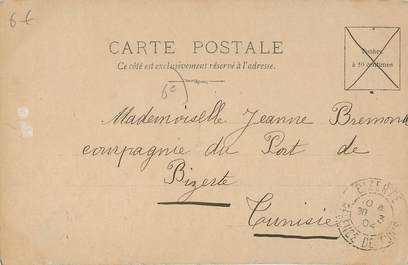 6€
CARTE POSTALE
Ce côté est exclusivement réservé à l'adresse.
Timbre
à 10 centimes
6e
Mademoiselle Jeanne Bremond
compagnie du Port de
Bizerte
Tunisie
BIZERTE
REGENCE DE TUNIS